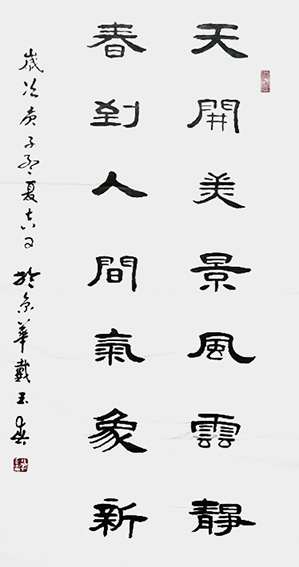 天開美景風雲靜
春到人間氣象新
歲次庚子孟夏吉日於京華戴玉春